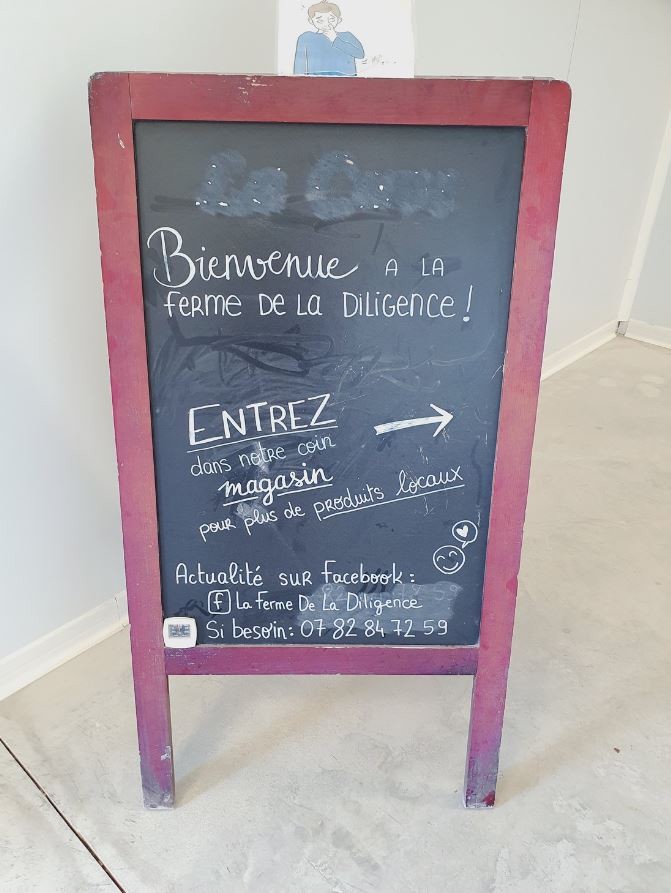 Bienvenue A LA
ferme DE LA DILIGENCE !
ENTREZ
dans notre coin
magasin
pour plus de produits locaux
Actualité sur Facebook :
f La Ferme De La Diligence
Si besoin : 07 82 84 72 59